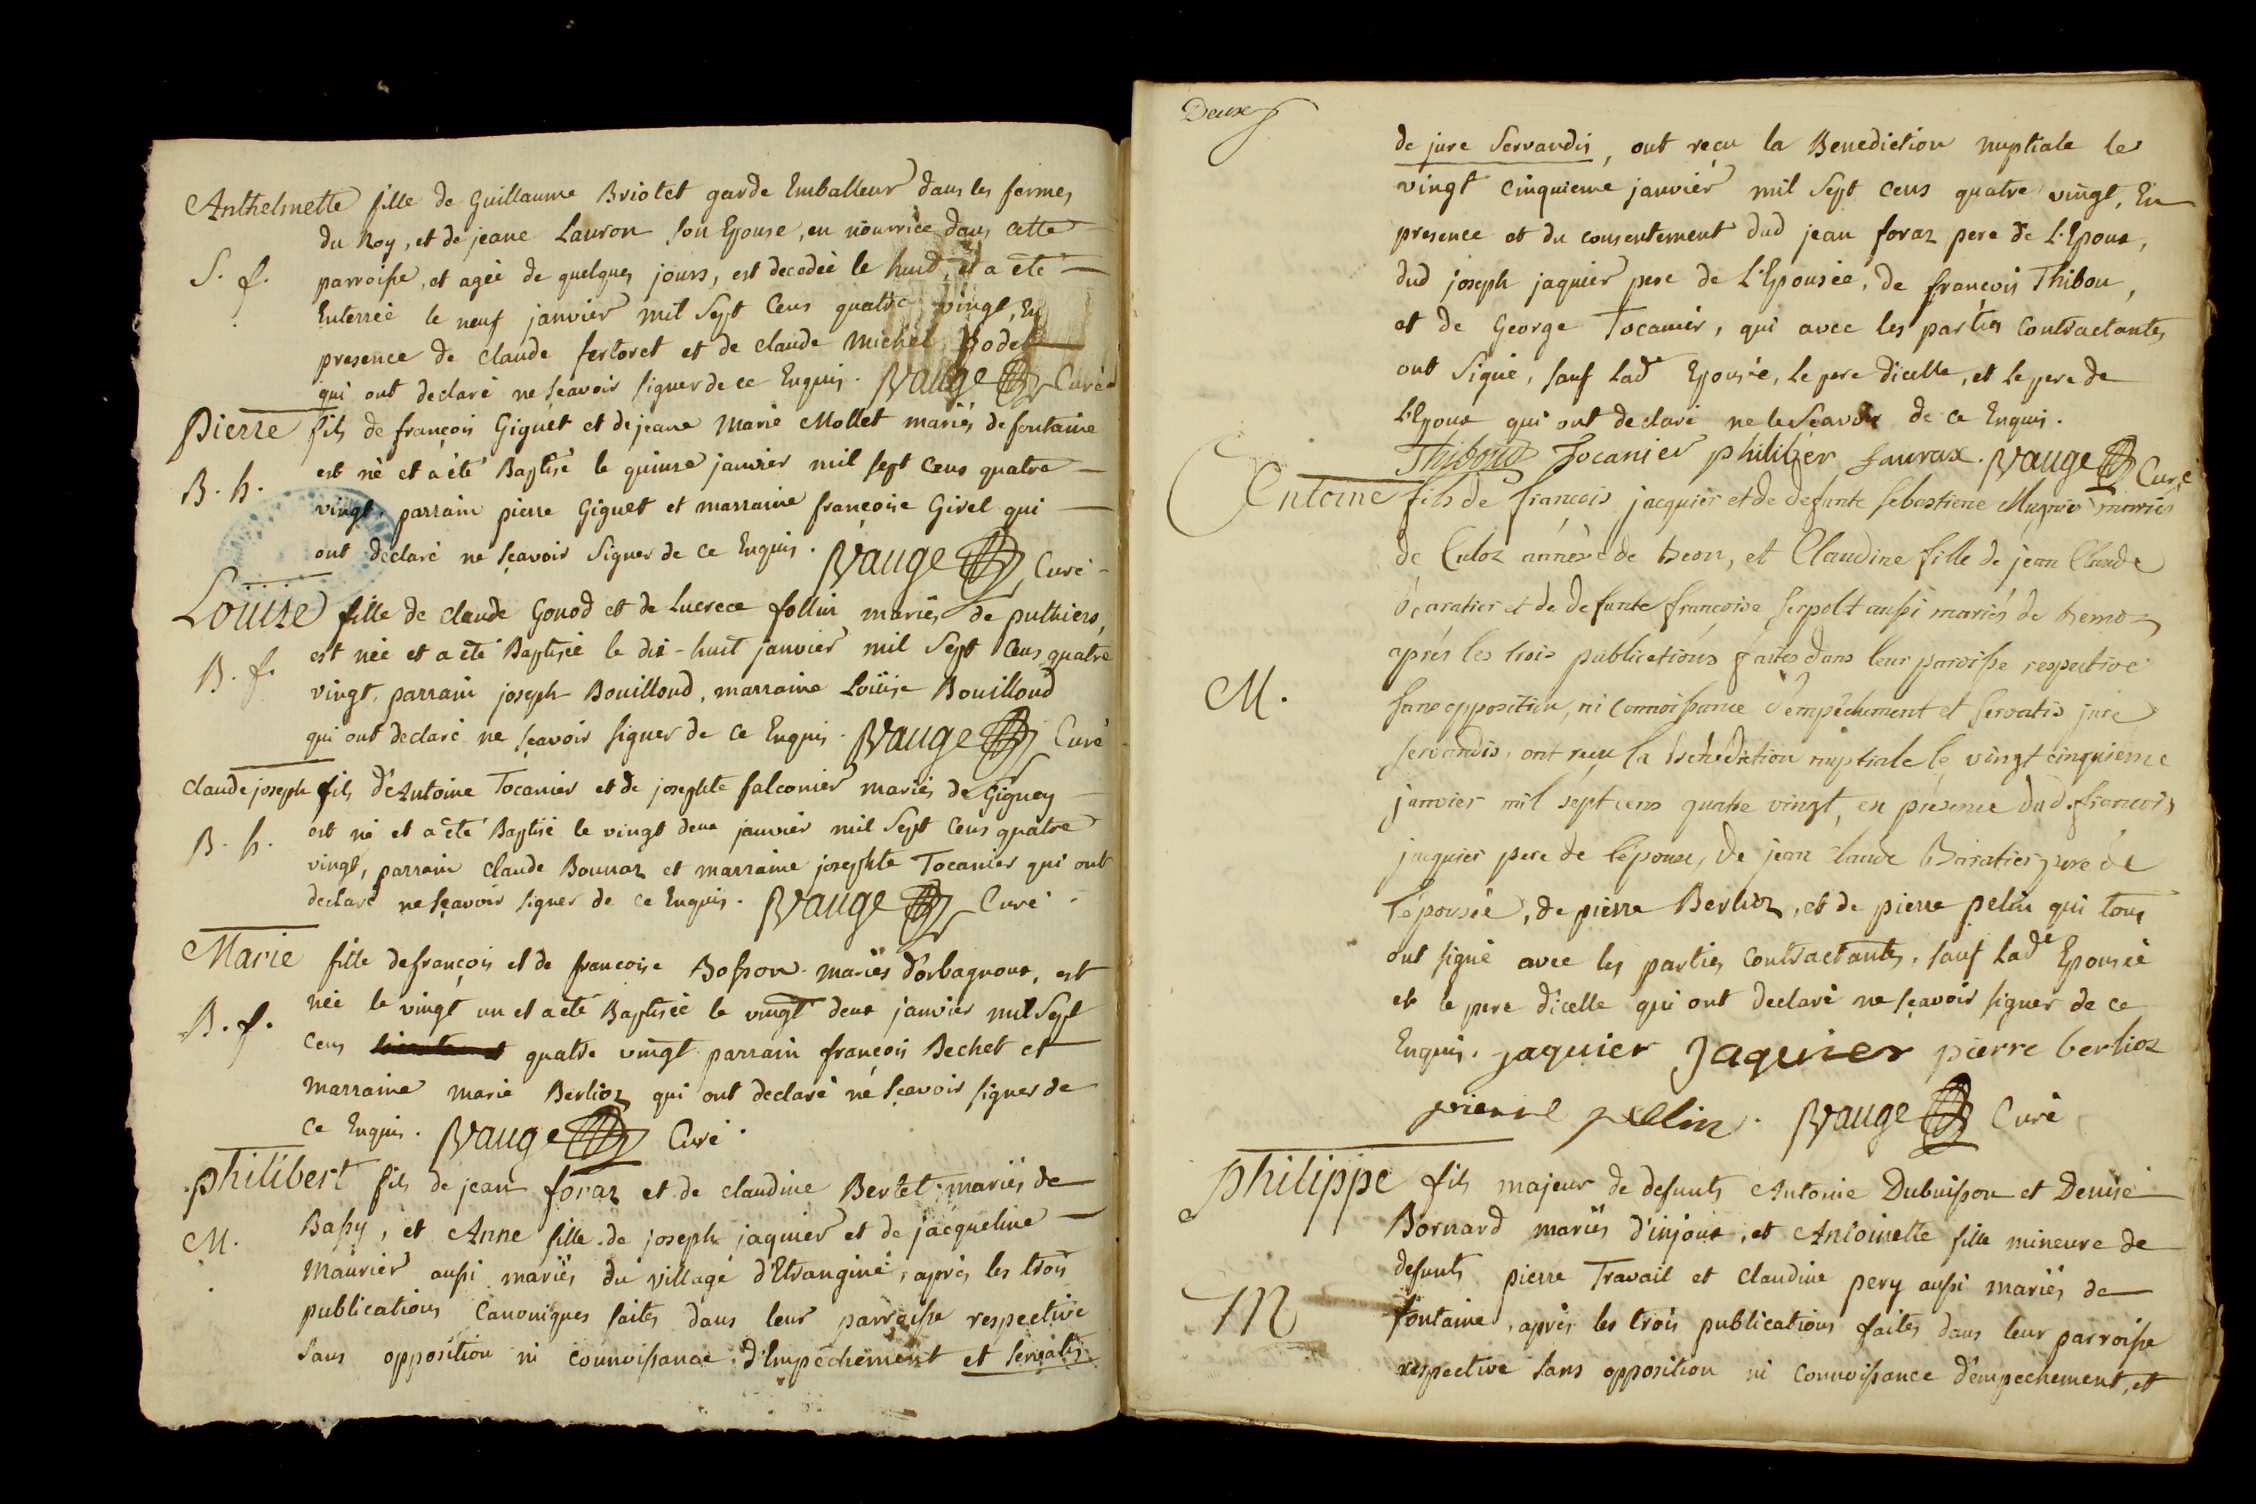 Anthelmette fille de Guillaume Briotet garde Emballeur dans les fermes
du Roy, et de jeane Lauron son Epouse, en nourrice dans cette
S. f.
parroisse, et agée de quelques jours, est decedée le huit, et a eté
Enterrée le neuf janvier mil Sept Cens quatre vingt, En
presence de claude fertoret et de claude Michel Bodet
qui ont declaré ne sçavoir signer de ce Enquis. Vauge Curé
Pierre fils de françois Giguet et de jeane Marie Mollet mariés de fontaine
B. h.
est né et a été Baptisé le quinze janvier mil sept Cens quatre
vingt, parrain pierre Giguet et marraine françoise Girel qui
ont declaré ne sçavoir Signer de ce Enquis. Vauge Curé
Loüise fille de claude Gonod et de Lucrece follin mariés de puthiers,
B. f.
est née et a eté Baptisée le dix-huit janvier mil Sept Cens quatre
vingt, parrain joseph Bouilloud, marraine Loüise Bouilloud
qui ont declaré ne sçavoir signer de ce Enquis. Vauge Curé
claude joseph fils d'Antoine Tocanier et de josephte falconier mariés de Gigney
B. h.
est né et a eté Baptisé le vingt deux janvier mil Sept Cens quatre
vingt, parrain claude Bonnaz et marraine josephte Tocanier qui ont
declaré ne sçavoir signer de ce Enquis. Vauge Curé
Marie fille de françois et de francoise Bosson mariés d'orbagnoux, est
B. f.
née le vingt un et a eté Baptisée le vingt deux janvier mil Sept
Cens quatre vingt parrain françois Bechet et
marraine marie Berlioz qui ont declaré ne sçavoir signer de
Ce Enquis. Vauge Curé
philibert fils de jean foraz et de claudine Bertet mariés de
M.
Bassy, et Anne fille de joseph jaquier et de jacqueline
Maurier aussi mariés du village d'Etranginé, après les trois
publications Canoniques faites dans leur parroisse respective
sans opposition ni connoissance d'Empêchement et servatis
Deux
de jure Servandis, ont reçu la Benediction nuptiale le
vingt cinquieme janvier mil Sept Cens quatre vingt, En
presence et du consentement dud jean foraz pere de L'Epoux,
dud joseph jaquier pere de L'Epousée, de françois Thibou,
et de George Tocanier, qui avec les parties Contractantes
ont Signé, sauf lad Epousée, le pere dicelle, et le pere de
L'Epoux qui ont declaré ne le Sçavoir de ce Enquis.
Tocanier philiber Vauge Curé
Antoine fils de françois jacquier et de defunte sebastiene mariés
de Culoz de et Claudine fille de jean Claude
et de defunte françoise aussi mariés de
après les trois publications faites dans leur paroisse respective
M.
sans opposition, ni connoissance d'empêchement et servatis jure
servandis, ont reçu la benediction nuptiale le vingt cinquieme
janvier mil sept cens quatre vingt, en présence dud. françois
jacquier pere de l'epoux, de jean claude pere de
l'épousée, de pierre Berlioz, et de pierre pelin qui tous
ont signé avec les parties Contractantes, sauf lade Epousée
et le pere d'icelle qui ont declaré ne sçavoir signer de ce
Enquis. jaquier Jaquier pierre berlioz
pierre pellin. Vauge Curé
philippe fils majeur de defunts Antoine Dubuisson et Denise
Bornard mariés d'injoux, et Antoinette fille mineure de
defunts pierre Travail et claudine pery aussi mariés de
M
fontaine, après les trois publications faites dans leur parroisse
respective sans opposition ni connoissance d'empechement, et